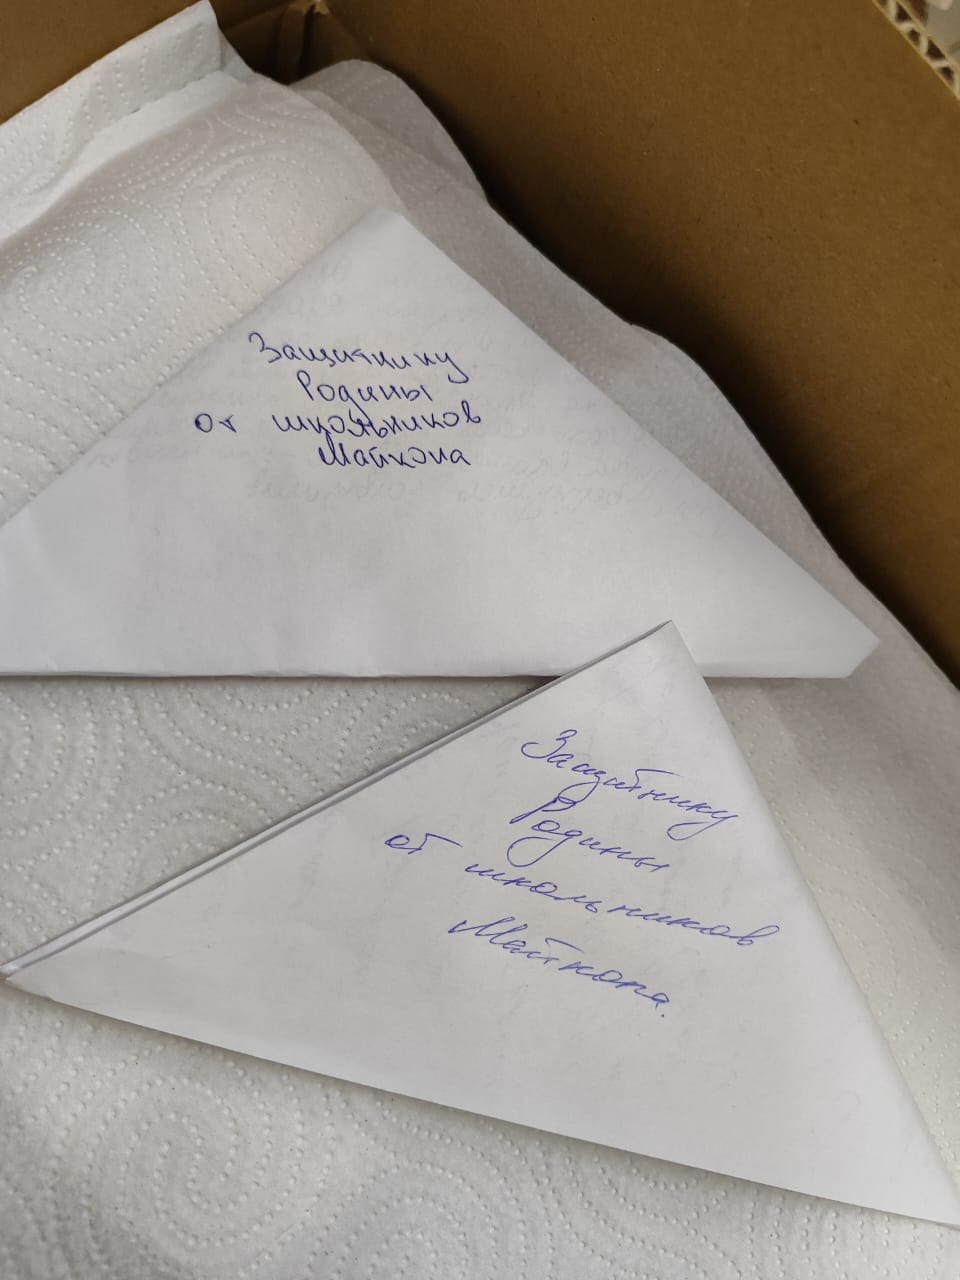 Защитнику
Родины
от школьников
Майкопа
Защитнику
Родины
от школьников
Майкопа.